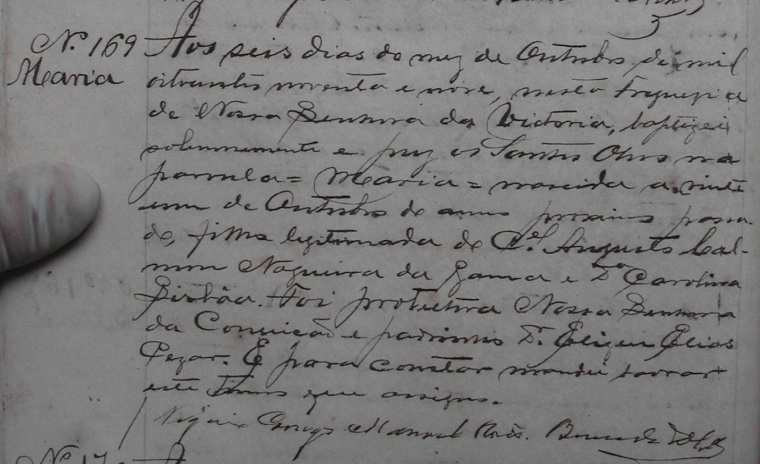 Nº 169 Aos seis dias do mez de Outubro de mil
Maria oitocentos noventa e nove, nesta Freguezia
de Nossa Senhora da Victoria, baptizei
solennemente e puz os Santos Oleos na
parvula = Maria = nascida a vinte
um de Outubro do anno proximo passa-
do, filha legitimada de Augusto Cal-
mon Nogueira da Gama e D. Carolina
Lisbôa. Foi protectora Nossa Senhora
da Conceição e padrinho Dr. Eliseu Elias
Cezar. E para constar mandei lavrar
este termo que assigno.
Vigario Conego Manoel
Nº 17